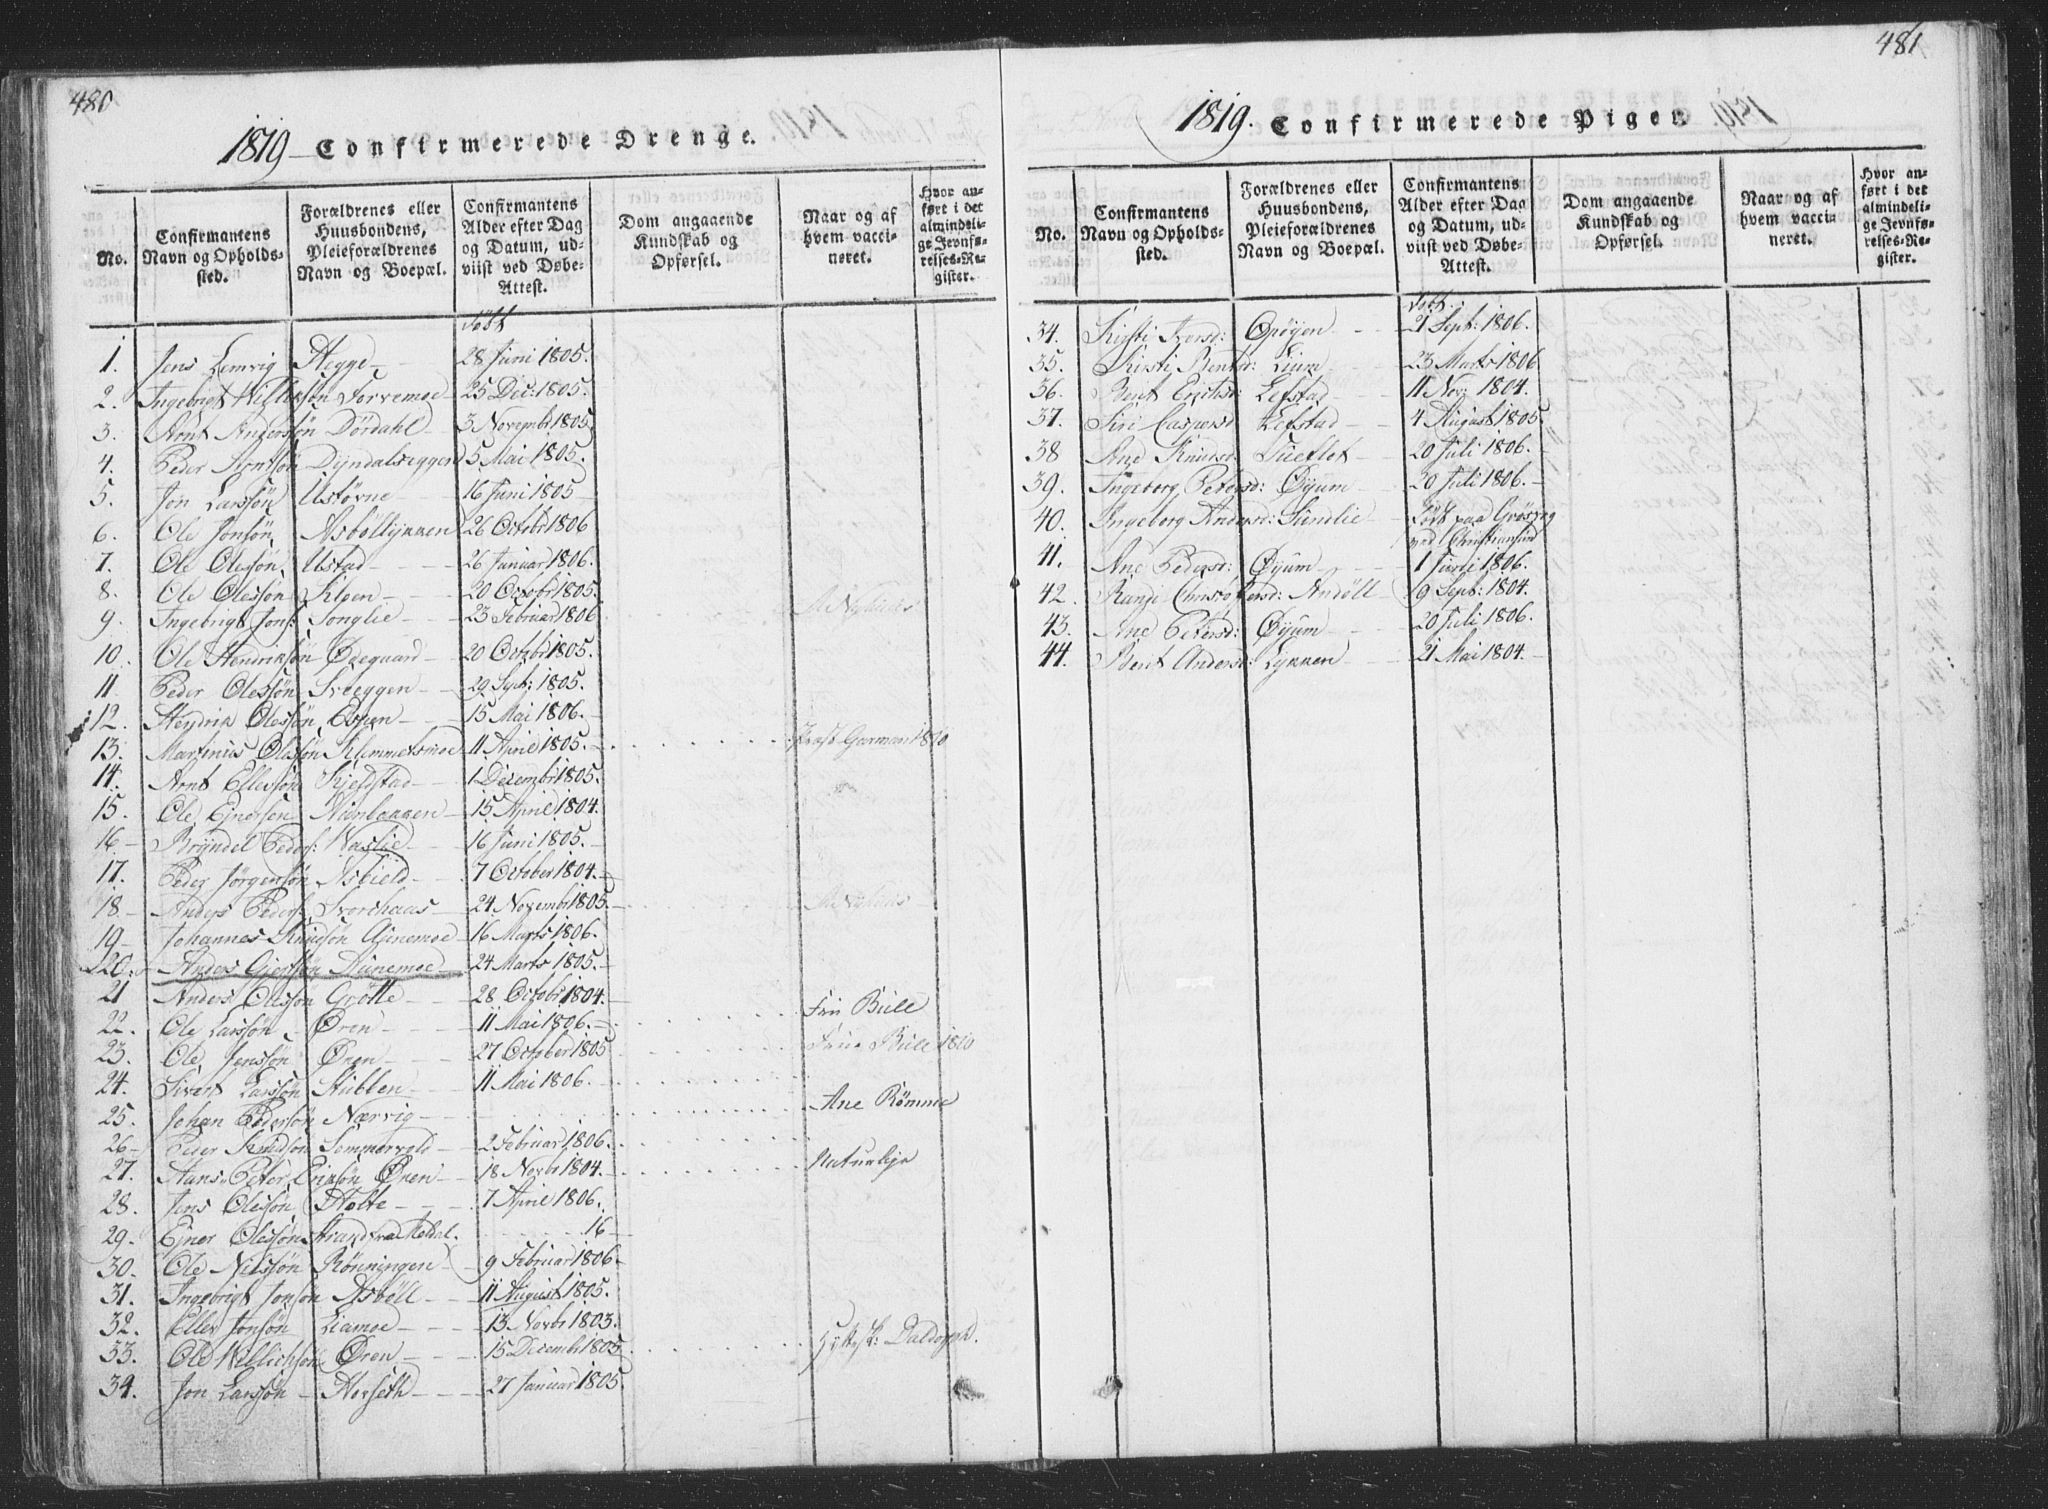 480
1819 Confirmerede Drenge.
No. | Confirmantens Navn og Opholds-sted. | Forældrenes eller Huusbondens, Pleieforældrenes Navn og Boepæl. | Confirmantens Alder efter Dag og Datum, ud-viist ved Døbe-Attest. | Dom angaaende Kundskab og Opførsel. | Naar og af hvem vacci-neret. | Hvor an-ført i det almindeli-ge Jevnfø-relses-Re-gister.
Født
1. Jens Lemvig Hegge 28 Juni 1805.
2. Ingebrigt Torvemoe 25 Dec: 1805.
3. Arnt Andersøn Dördahl 3 Novembr 1805
4. Peder Arntsøn Dyndalseggen 5 Mai 1805.
5. Jon Larssøn Ustørne 16 Juni 1805
6. Ole Jonsøn Asböllykken 26 Octobr 1806
7. Ole Olessøn Ustad 26 Januar 1806.
8. Ole Olessøn Kleen 20 Octobr 1805.
9. Ingebrigt Jons: Songlie 23 Februar 1806
10. Ole Hendriksøn Ødegaard 20 Octobr 1805.
11. Peder Olessøn Sveeggen 29 Sept: 1805.
12. Hendrik Olessøn 15 Mai 1806.
13. Martinus Olessøn Klemmetsmoe 11 April 1805. Garman 1810
14. Arnt Ellessøn Skjefstad 1 Decembr 1805.
15. Ole Ejnersen 15 April 1804.
16 Bryndel Peders: Vaslie 16 Juni 1805.
17. Peder Jörgensøn Asbield 7 October 1804.
18 Anders Peders: Svorchaas 24 Novembr 1805.
19 Johannes Knudsøn Aunemoe 16 Marts 1806.
20. Anders Aunemoe 24 Marts 1805.
21 Anders Olessøn Grötte 28 Octobr 1804.
22. Ole Larssøn Øren 11 Mai 1806. Fru Bull
23. Ole Jenssøn Øren 27 October 1805 Frue Bull 1810
24. Sivert Larssøn Stubben 11 Mai 1806.
25. Johan Pedersøn Nærvig Ane Römme
26 Peder Knudsøn Sommervold 2 Februar 1806.
27. Hans Peter Eriksøn Øren 18 Novbr 1804. Naturlige
28. Jens Olessøn Holte 7 April 1806.
29. Ejner Olessøn Strand fra Meldal. 16
30. Ole Nilssøn Rönningen 9 Februar 1806
31. Ingebrigt Jonsøn Asböll 11 August 1805.
32. Eller Jonsøn Liamoe 13 Novbr 1803.
33. Ole Willichsøn Øren 15 Decembr 1805.
34. Jon Larssøn Horseth 27 Januar 1805.
481
1819. Confirmerede Piger.
No. | Confirmantens Navn og Opholds-sted. | Forældrenes eller Huusbondens, Pleieforældrenes Navn og Boepæl. | Confirmantens Alder efter Dag og Datum, ud-viist ved Døbe-Attest. | Dom angaaende Kundskab og Opførsel. | Naar og af hvem vacci-neret. | Hvor an-ført i det almindeli-ge Jevnfø-relses-Re-gister.
Født
34. Kirsti Iversd: Opøyen 21 Sept: 1806.
35. Kirsti Bentsd: Lium 23 Marts 1806
36. Berit Ericksd: Lefstad 11 Nov: 1804.
37. Siri Caspersd Lefstad 4 August 1805.
38 Ane Knutsd: Tueflot 20 Juli 1806.
39. Ingeborg Petersd: Øyum 20 Juli 1806.
40. Ingeborg Andersd: Sundlie Født paa
ved Christiansund
41. Ane Pedersd: Øyum 1 Juni 1806.
42. Randi Christophersd: 9 Sept: 1804.
43. Ane Petersd: Øyum 20 Juli 1806.
44. Berit Andersd: Lykken 21 Mai 1804.